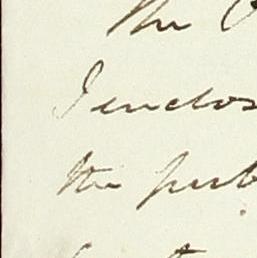 The
I enclos
the pub